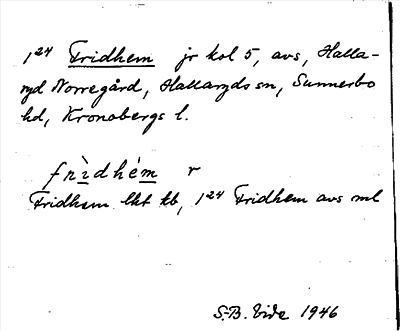 1²⁴ Fridhem jr kol 5, avs, Halla-
ryd Norregård, Hallaryds sn, Sunnerbo
hd, Kronobergs l.
frìdhém r
Fridhem lkt tb, 1²⁴ Fridhem avs ml
S-B. Vide 1946